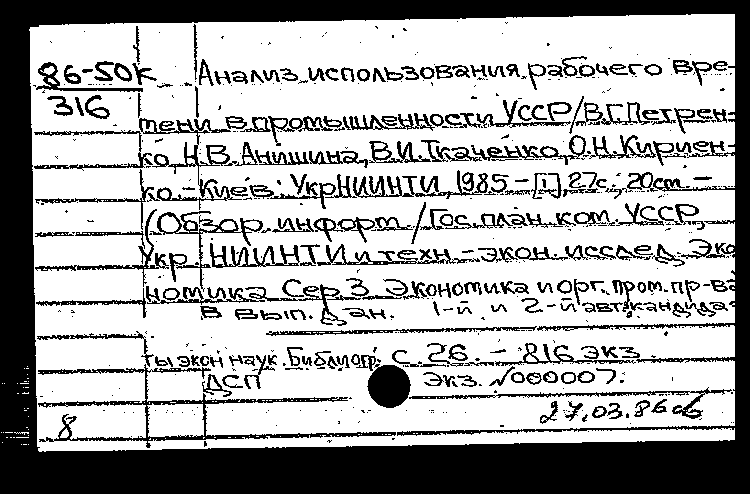 86-50к Анализ использования рабочего вре-
316
мени в промышленности УССР/В.Г.Петрен-
ко, Н.В. Анишина, В.И. Ткаченко, О.Н. Кириен-
ко.- Киев: УкрНИИНТИ, 1985 - [1], 27с.; 20см. -
(Обзор. информ. / Гос. план. ком. УССР,
Укр НИИНТИ и техн. - экон. исслед. Эко
номика Сер. 3. Экономика и орг. пром. пр-ва
В вып. дан. 1-й и 2-й авт. кандида-
ты экон наук. Библиогр. с. 26. - 816 экз.
ДСП экз. №000007.
27.03.86
8